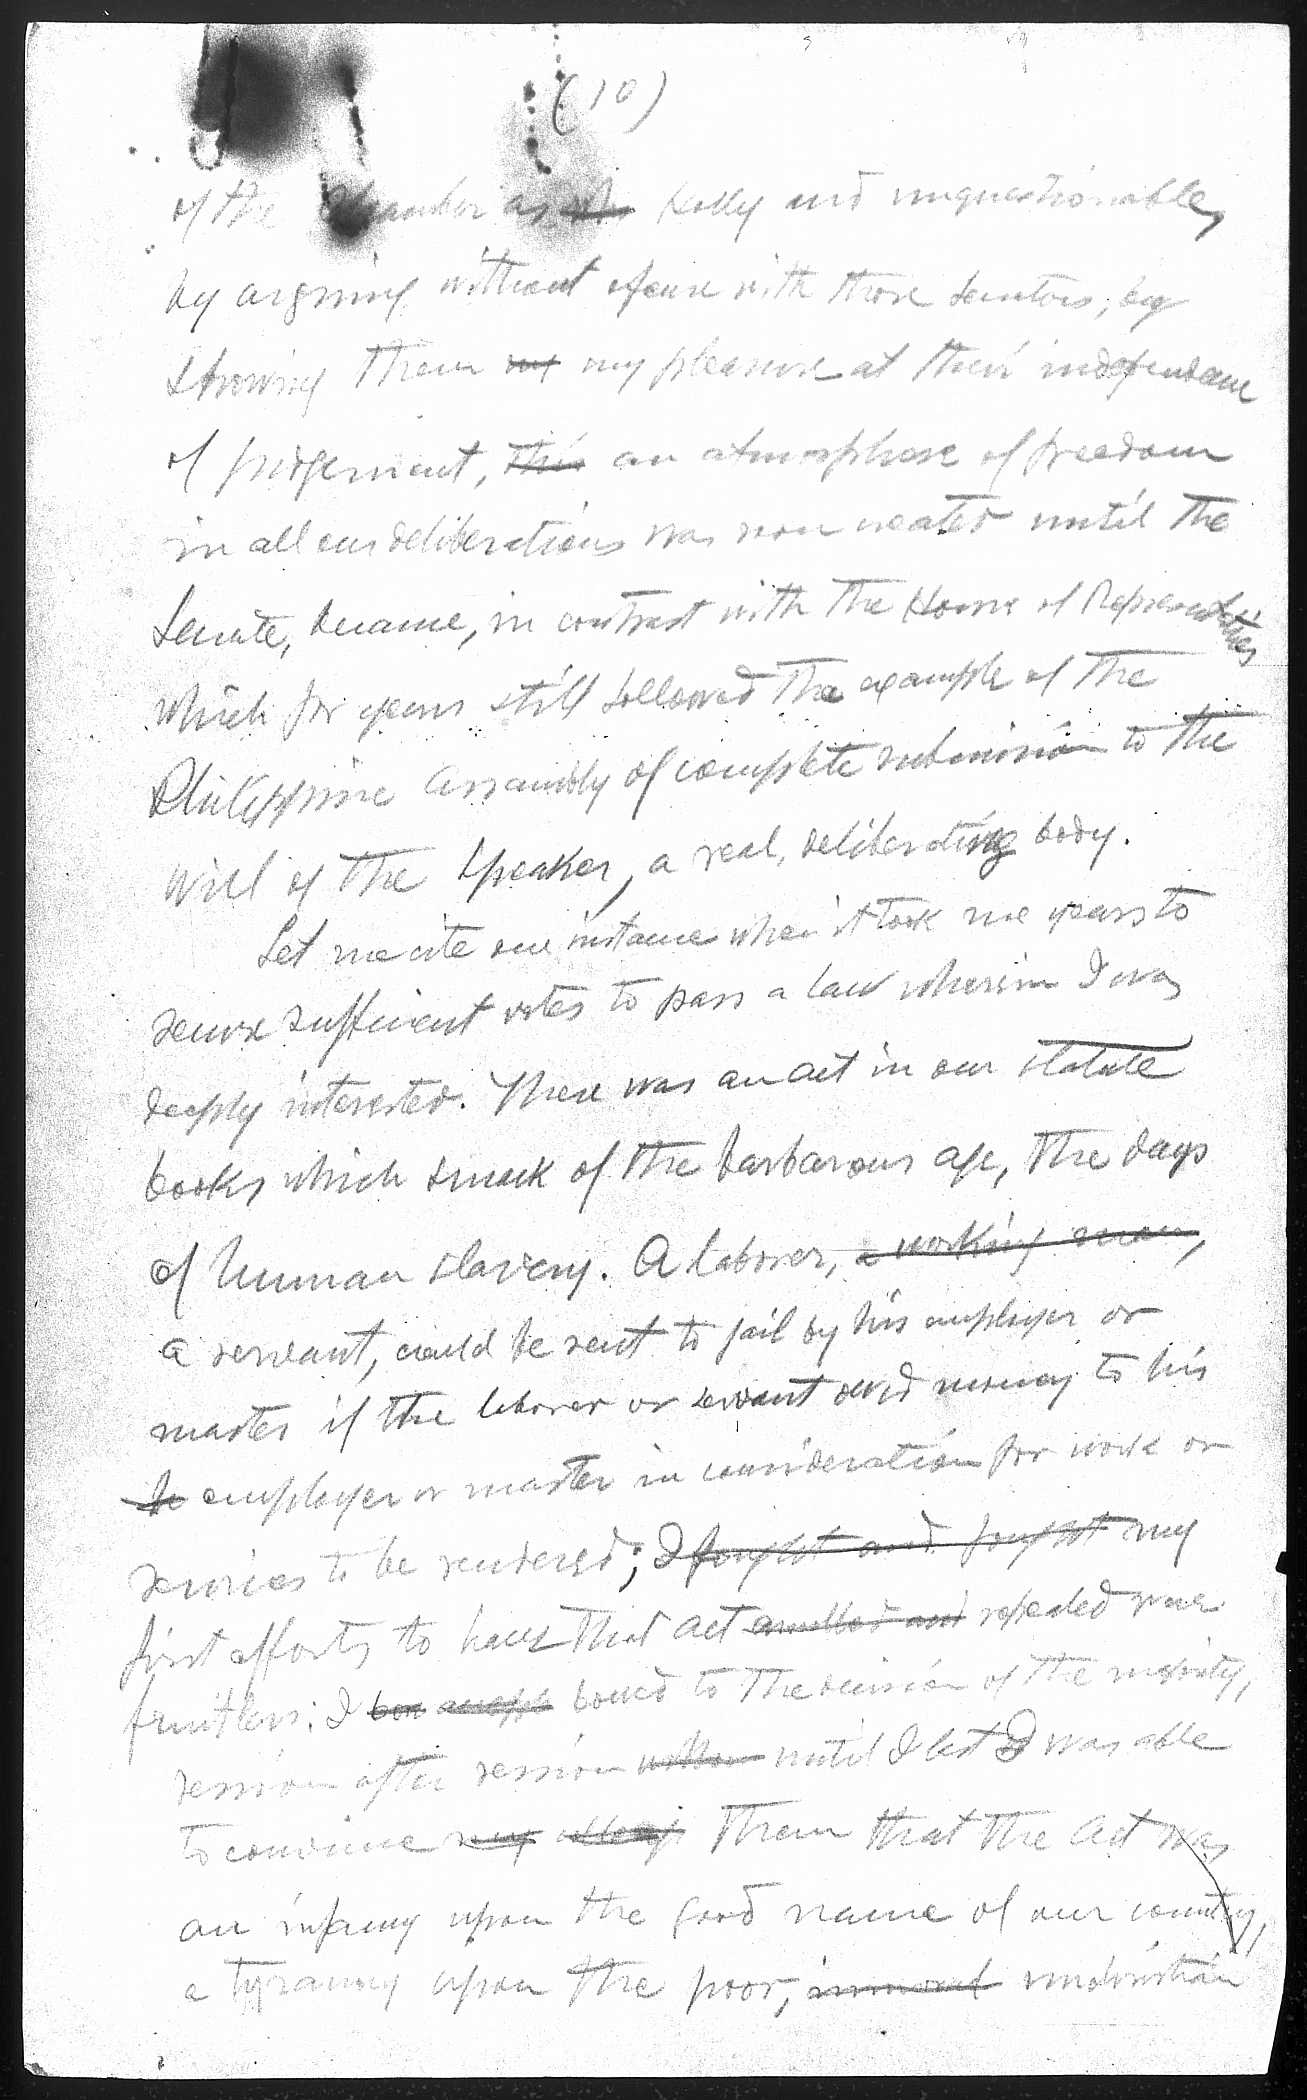 (10)
of the Chamber as holy and unquestionable,
by arguing without ofense with those Senators, by
showing them my my pleasure at their independence
of judgement, this an atmosphere of freedom
in all our deliberations was soon created until the
Senate, became, in contrast with the House of Representatives
which for years still followed the example of the
Philippine Assambly of complete submission to the
will of the Speaker, a real, deliberating body.
Let me cite one instance when it took me years to
secure sufficient votes to pass a law wherein I was
deeply interested. There was an act in our statute
books which smack of the barbarous age, the days
of human slavery. A laborer, a working man,
a servant, could be sent to jail by his employer or
master if the laborer or servant owed money to his
he employer or master in consideration for work or
services to be rendered; I fought and fought my
first efforts to have that act annulled and repealed were
fruitless; I bowed to the decision of the majority,
session after session until I last I was able
to convince my them that the act was
an infamy upon the good name of our country,
a tyranny upon the poor, immoral unchristian